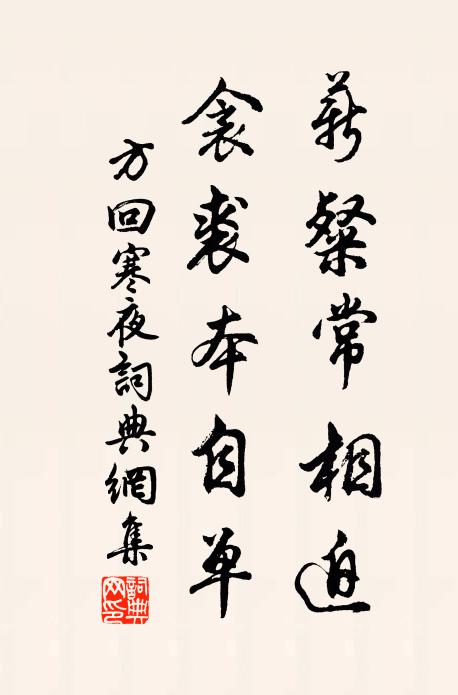 薪粲常相迫
衾裘本自单
方回寒夜詞典網集
詞典网印